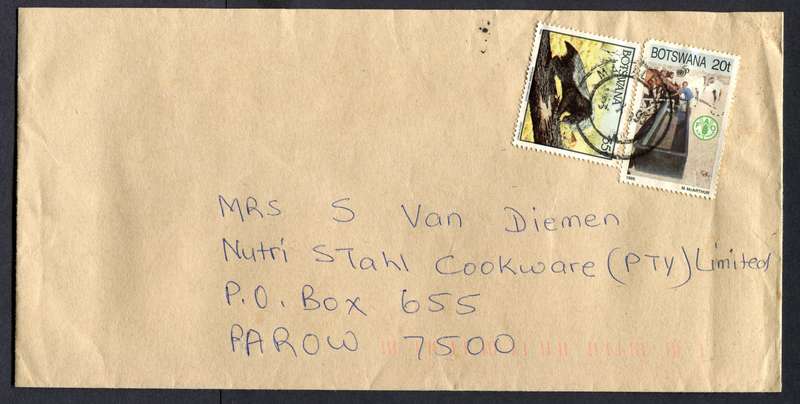 BOTSWANA
BOTSWANA 20t
M McARTHUR
MRS S Van Diemen
Nutri STahl Cookware (PTY) Limited
P.O. Box 655
PAROW 7500